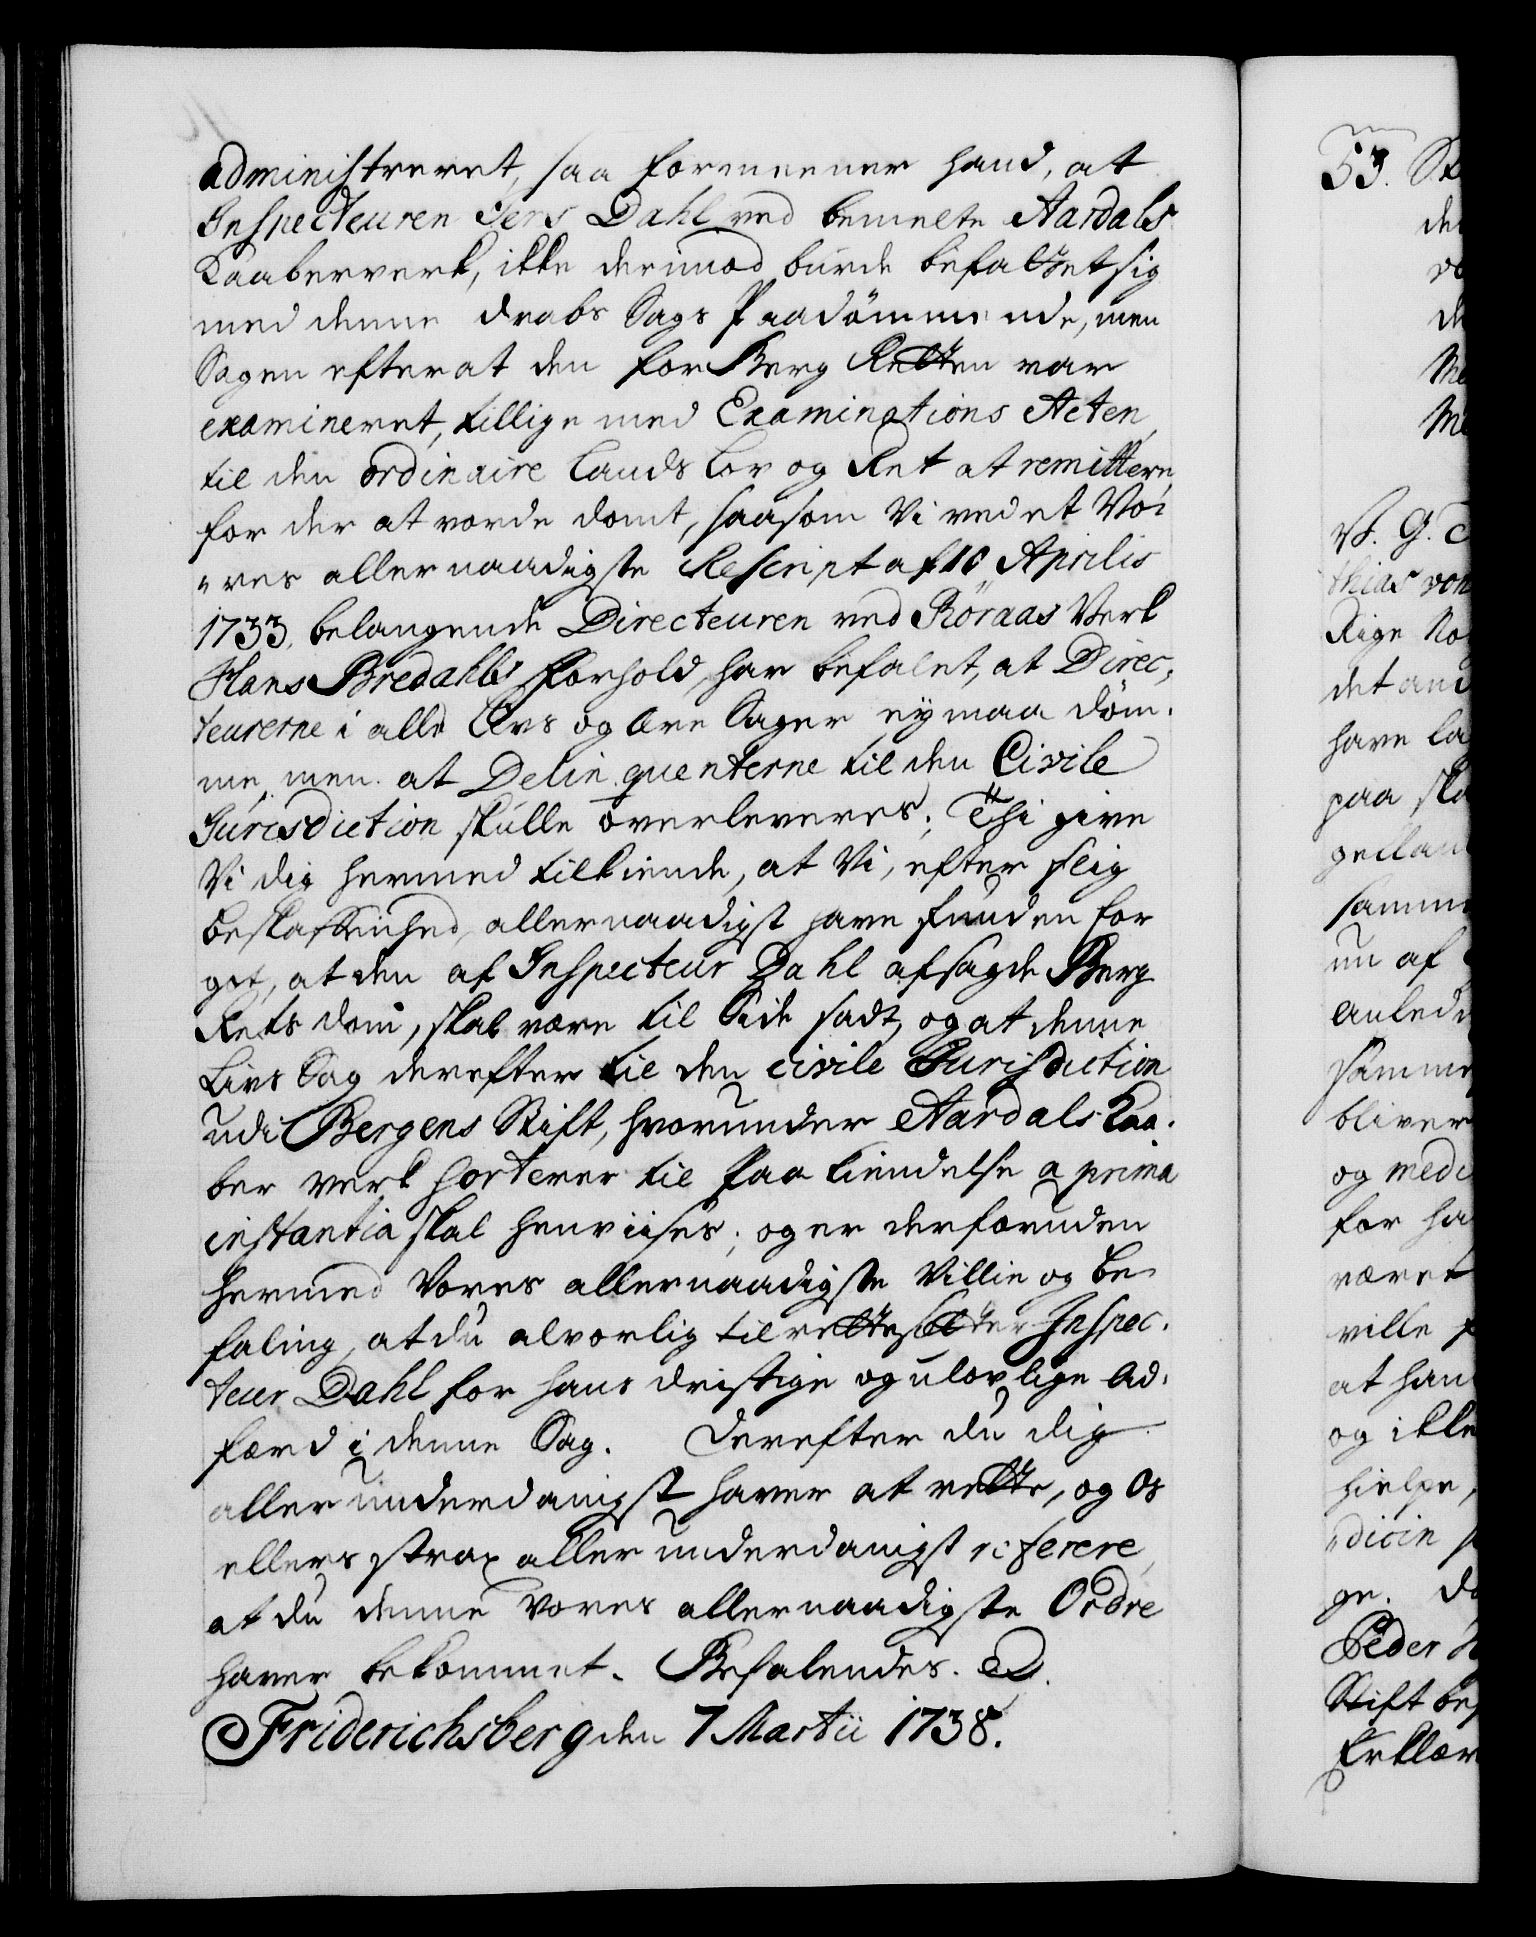 administreret, saa formeener hand, at
Inspecteuren Jens Dahl ved bemelte Aardals
Kaaberverk, ikke derimod burde befattet sig
med denne Drabs Sags Paadömmende, men
Sagen efter at den for Berg Retten var
examineret, tillige med Examinations Acten,
til den ordinaire Lands Lov og Ret at remittere,
for der at vorde dömt, saasom Vi ved et Vo-
"res allernaadigste Rescript af 10 Aprilis
1733, belangende Directeuren ved Röraas Verk
Hans Bredahls Forhold, har befalet, at Direc-
teurerne i alle Livs og Ære Sager ey maa döm-
me, men at Delinquenterne til den Civile
Jurisdiction skulle overleveres; Thi give
Vi dig hermed tilkiende, at Vi, efter slig
beskaffenhed, allernaadigst have funden for
got, at den af Inspecteur Dahl afsagde Berg
Rets dom, skal være til Side sadt, og at denne
Livs Sag derefter til den civile Jurisdiction
udi Bergens Stift, hvorunder Aardals Kaa-
ber verk sorterer til Paakiendelse a prima
instantia skal henviises; og er derforuden
hermed Vores allernaadigste Villie og Be-
faling, at du alvorlig tilrettesætter Inspec-
teur Dahl for hans dristige og ulovlige Ad-
færd i denne Sag. Derefter du dig
allerunderdanigst haver at rette, og Os
ellers strax allerunderdanigst referere,
at du denne Vores allernaadigste Ordre
haver bekommet. Befalendes. 
Friderichsberg den 7 Martii 1738.
53.
V. G. 
thias von
Rige No
det and
have la
paa ska

un af

samme
bliver
og medi
for ha
været
ville
at han
og ikke
hielpe,
"dicin
ge.
Peder
Stift
Erklær